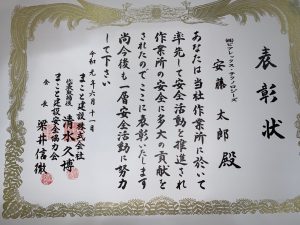 表彰状
㈱ピアレックス・テクノロジーズ
安藤太郎殿
あなたは当社作業所に於いて
率先して安全活動を推進され
作業所の安全に多大の貢献を
されたのでここに表彰いたします
尚今後も一層安全活動に努力
して下さい
令和元年六月十一日
まこと建設株式会社
作業所長 清水久博
まこと建設安全協力会
会長 梁井信徹